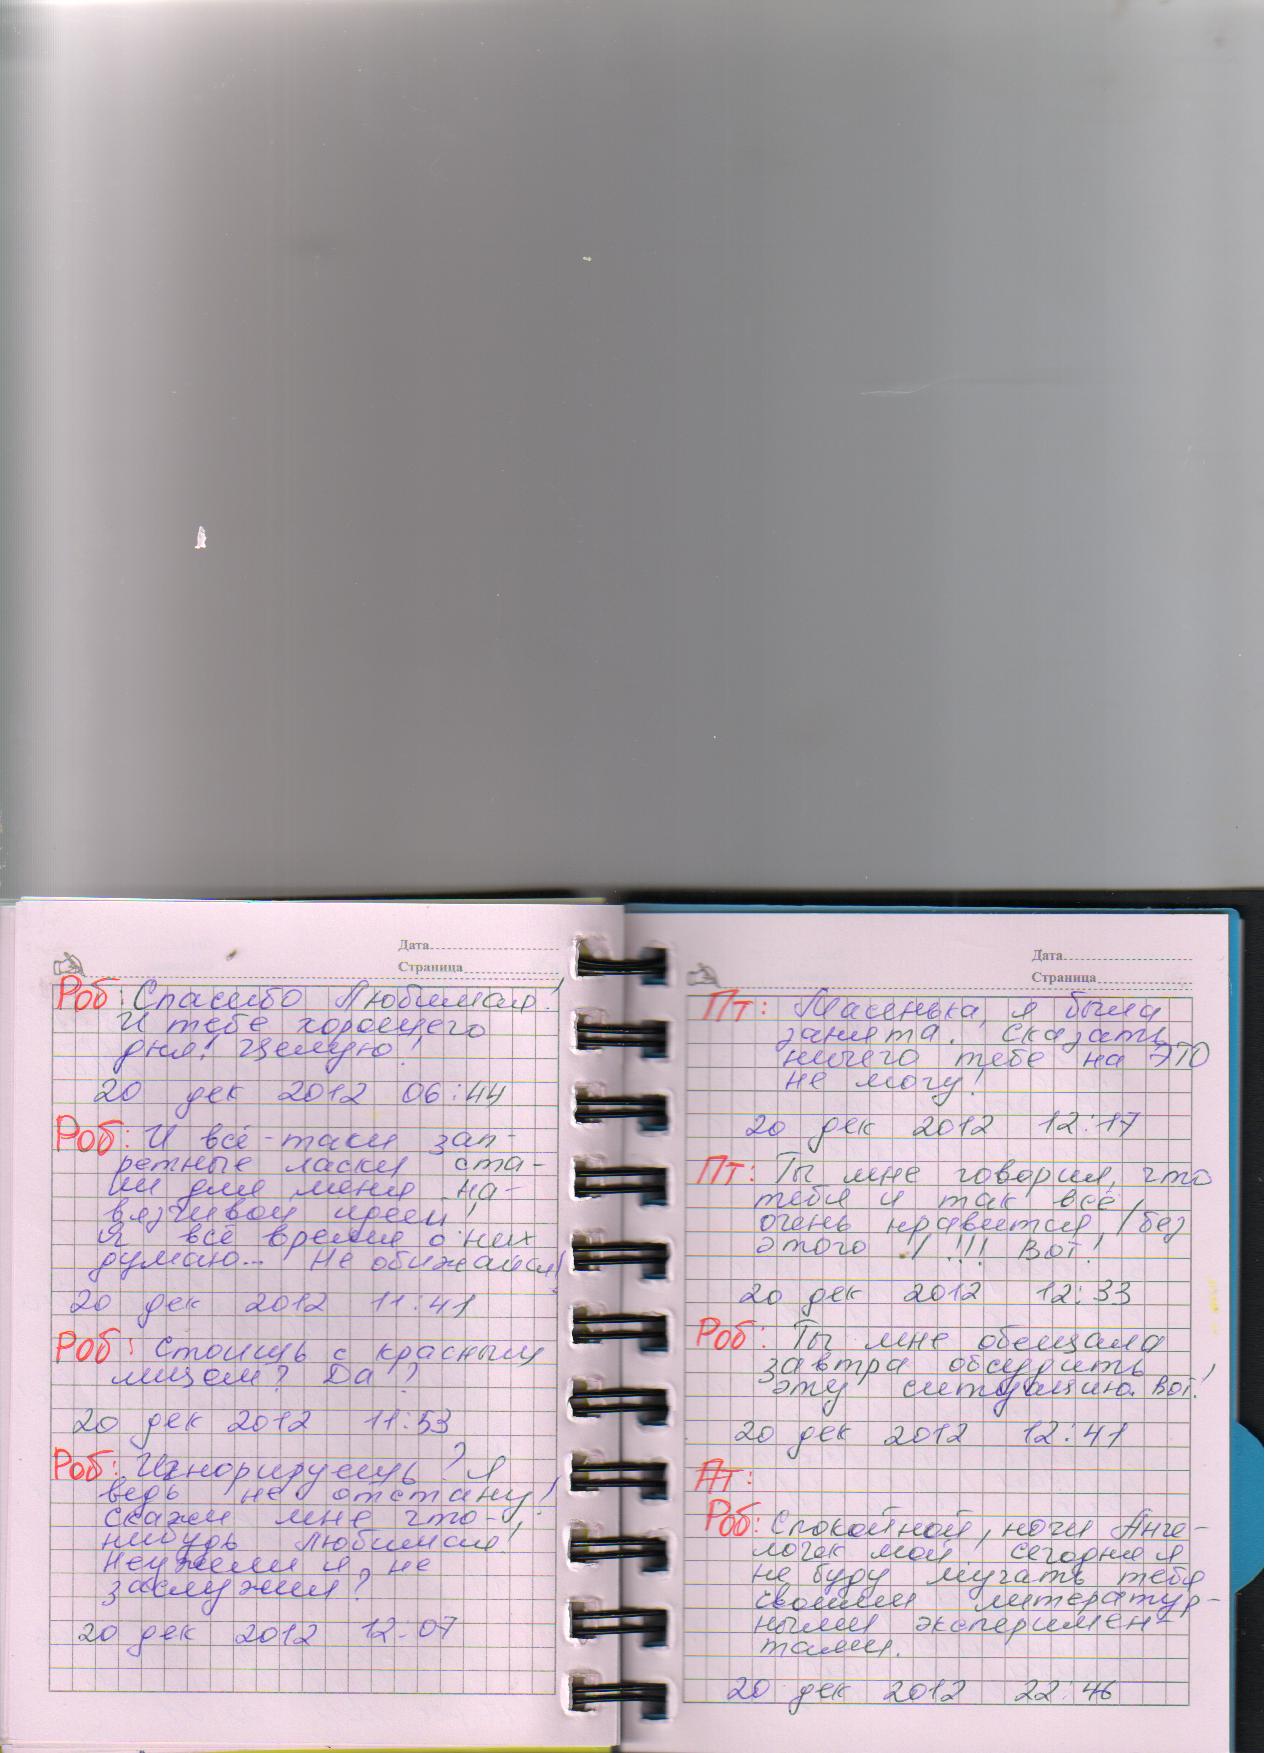 Дата
Страница
Роб: Спасибо Любимая!
И тебе хорошего
дня! Целую!
20 дек 2012 06:44
Роб: И всё-таки зап-
ретные ласки ста-
ли для меня на-
вязчивой идеей!
Я всё время о них
думаю... Не обижайся!
20 дек 2012 11:41
Роб: Стоишь с красным
лицом? Да?
20 дек 2012 11:53
Роб: Игнорируешь? Я
ведь не отстану!
скажи мне что-
нибудь Любимая!
Неужели я не
заслужил?
20 дек 2012 12:07
Дата
Страница
Пт: Масенька, я была
занята. Сказать
ничего тебе на ЭТО
не могу!
20 дек 2012 12:17
Пт: Ты мне говорил, что
тебе и так всё
очень нравится, /без
этого / !!! Вот!
20 дек 2012 12:33
Роб: Ты мне обещала
завтра обсудить
эту ситуацию. Вот!
20 дек 2012 12:41
Пт:
Роб: Спокойной, ночи Анге-
лочек мой. Сегодня я
не буду мучать тебя
своими литератур-
ными эксперимен-
тами.
20 дек 2012 22:46